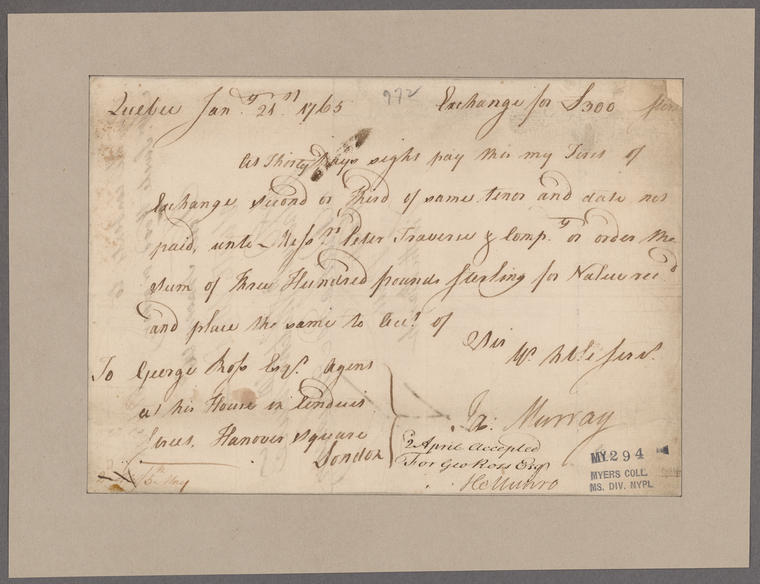 Quebec Janry 21st 1765 972 Exchange for £300 sterl
At Thirty Days sight pay this my First of
Exchange second or Third of same tenor and date not
paid, unto Messrs Peter Traverse & Compy or order the
sum of Three Hundred pounds sterling for Value recd
and place the same to Acct of
Sir
Yr H'ble Servt
Ja: Murray
To George Ross Esqr Agent
at his House in Conduit
Street, Hanover square
London
2 April Accepted
For Geo Ross Esq
H Munro
5th May
MY 294
MYERS COLL.
MS. DIV. NYPL